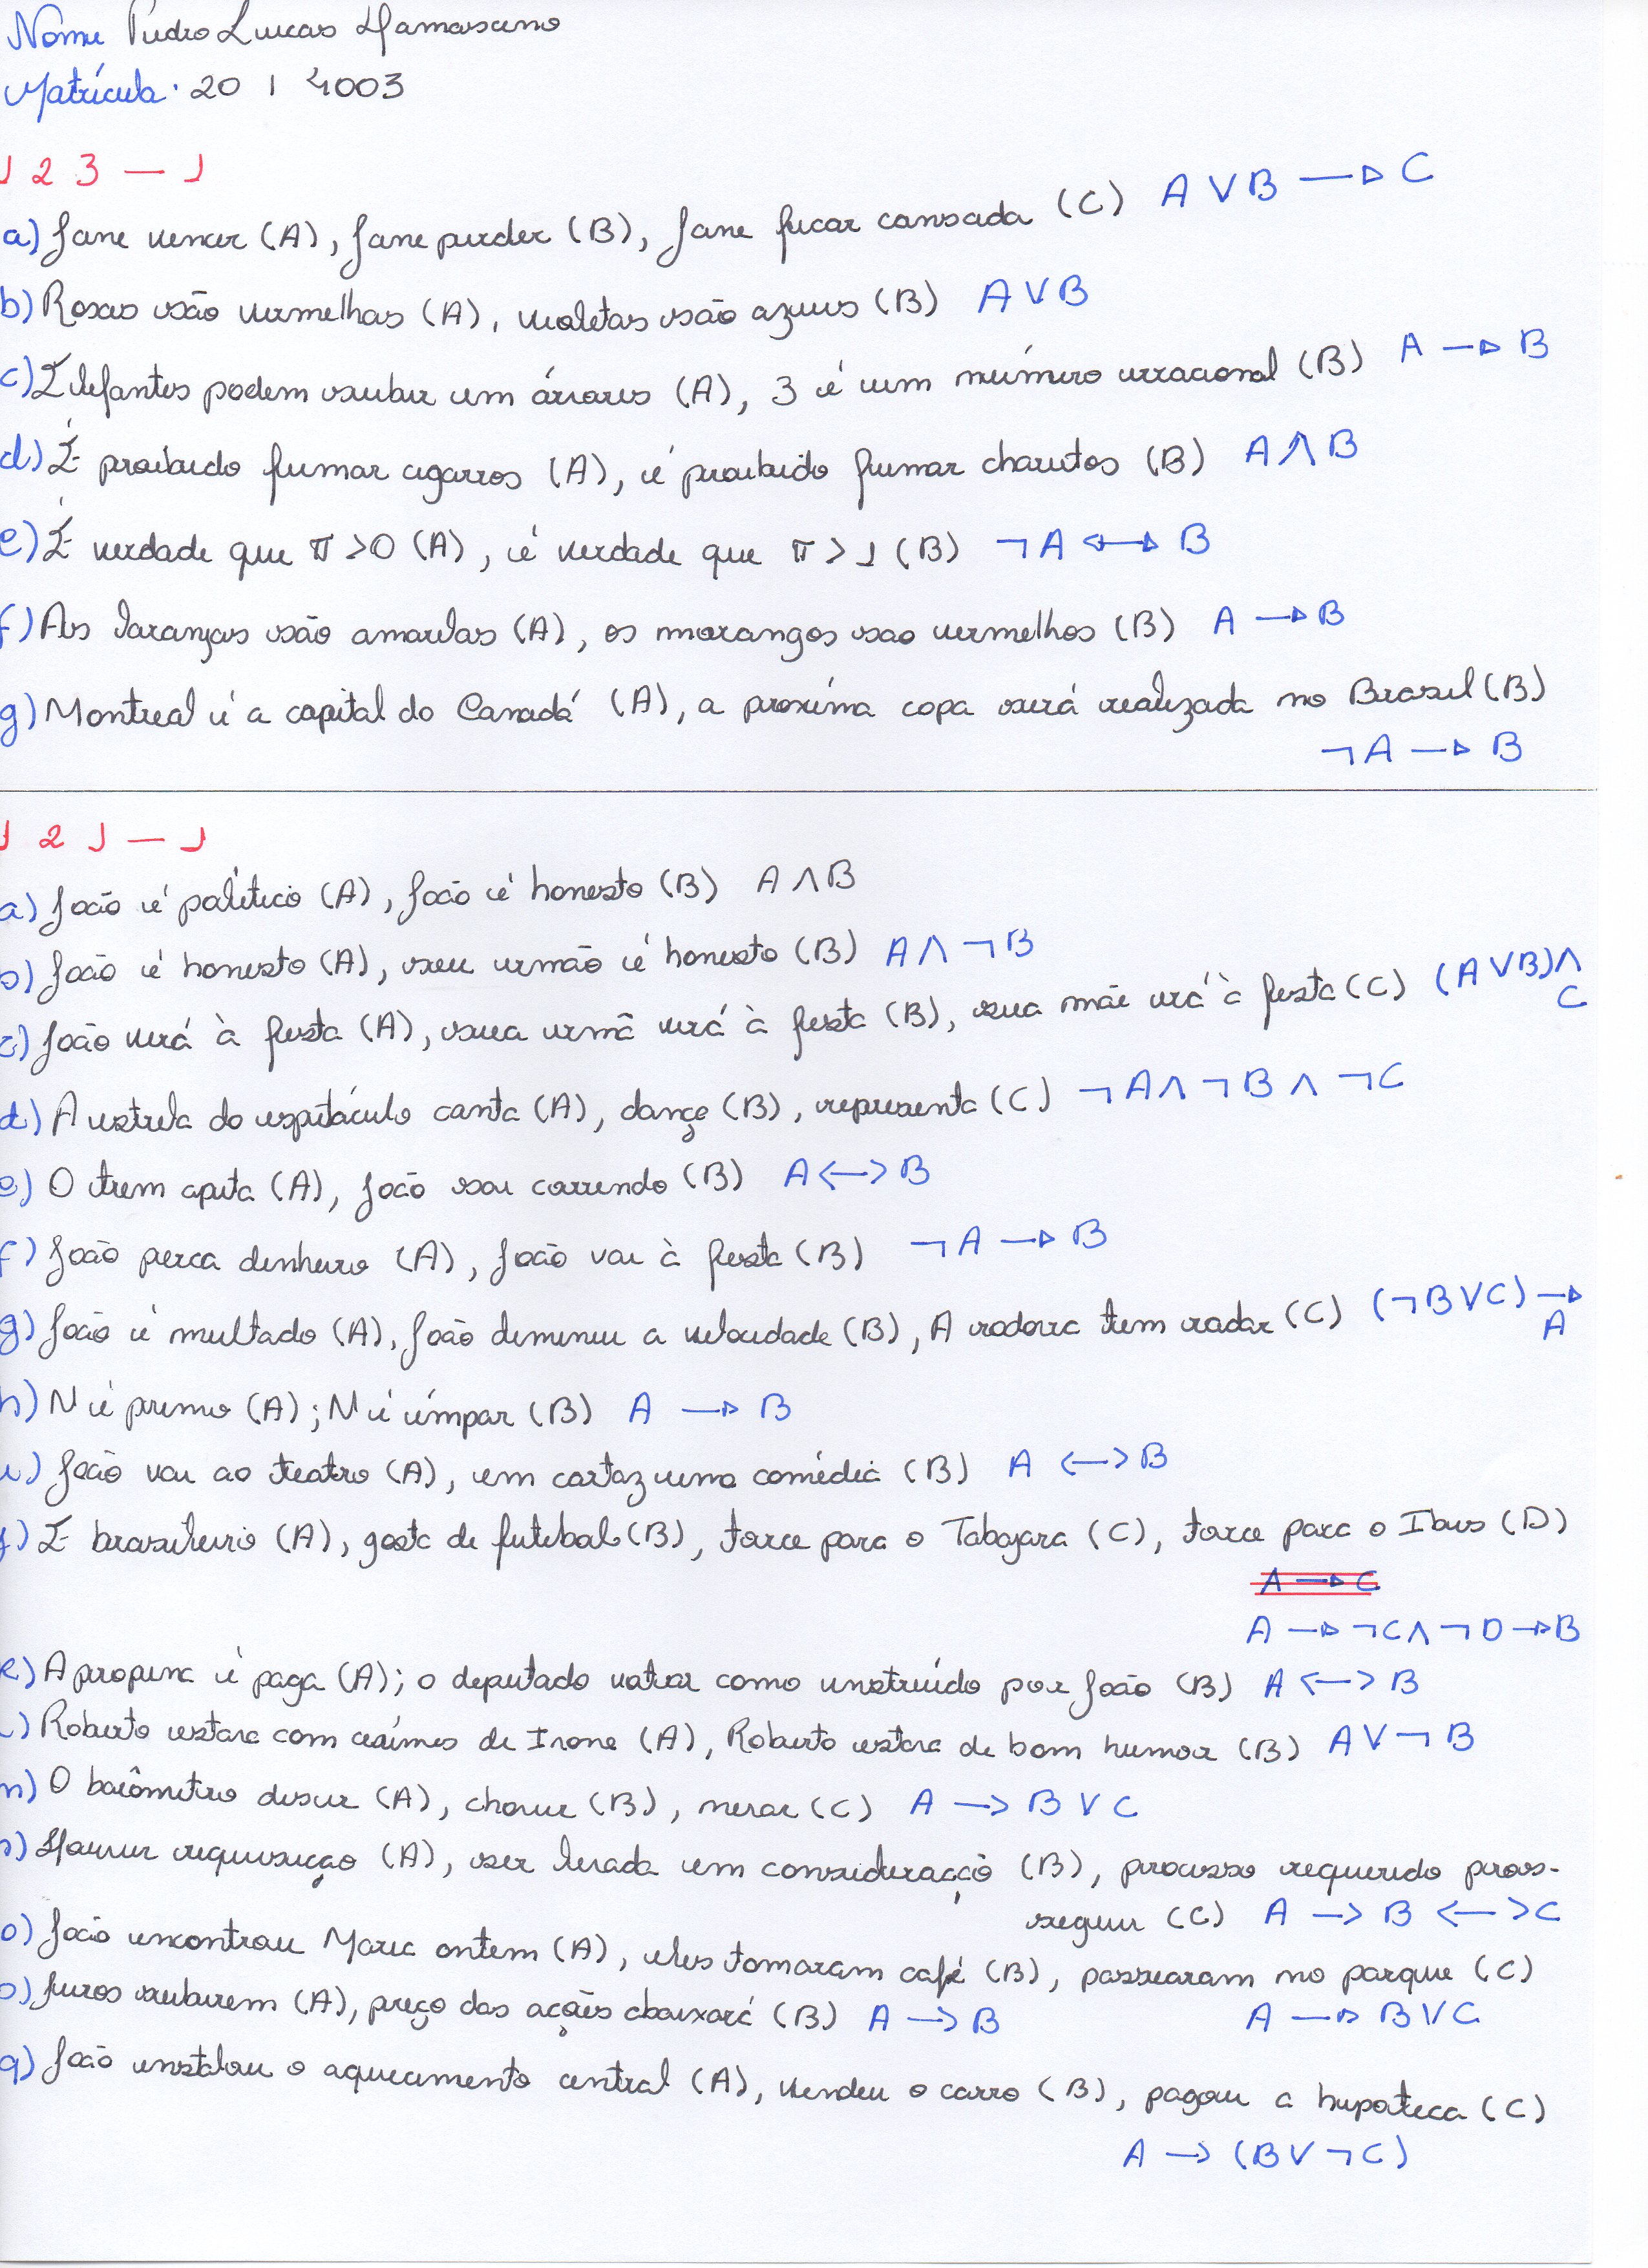 Nome Pedro Lucas Damasceno
Matrícula: 20 1 4003
1 2 3 — 1
a) Jane vencer (A), Jane perder (B), Jane ficar cansada (C) A ∨ B → C
b) Rosas são vermelhas (A), violetas são azuis (B) A ∨ B
c) Elefantes podem subir em árvores (A), 3 é um número irracional (B) A → B
d) É proibido fumar cigarros (A), é proibido fumar charutos (B) A ∧ B
e) É verdade que π > 0 (A), é verdade que π > 1 (B) ¬A ↔ B
f) As laranjas são amarelas (A), os morangos sao vermelhos (B) A → B
g) Montreal é a capital do Canadá (A), a proxíma copa será realizada no Brasil (B)
¬A → B
1 2 1 — 1
a) João é político (A), João é honesto (B) A ∧ B
b) João é honesto (A), seu irmão é honesto (B) A ∧ ¬B
c) João virá à festa (A), sua irmã virá à festa (B), sua mãe irá à festa (C) (A ∨ B) ∧
C
d) A estrela do espetáculo canta (A), dança (B), representa (C) ¬A ∧ ¬B ∧ ¬C
e) O trem apita (A), João sai correndo (B) A <—> B
f) João perca dinheiro (A), João vai à festa (B) ¬A → B
g) João é multado (A), João diminui a velocidade (B), A rodovia tem radar (C) (¬B ∨ C) →
A
h) N é primo (A); N é ímpar (B) A → B
i) João vai ao teatro (A), em cartaz uma comédia (B) A <—> B
j) É brasileiro (A), gosta de futebol (B), torce para o Tabajara (C), torce para o Ibis (D)
A → C
A → ¬C ∧ ¬D → B
k) A propina é paga (A); o deputado votar como instruído por João (B) A <—> B
l) Roberto estara com ciúmes de Ivone (A), Roberto estara de bom humor (B) A ∨ ¬B
m) O barômetro descer (A), chover (B), nevar (C) A —> B ∨ C
n) Houver requisição (A), ser levada em consideração (B), processo requerido pros-
seguir (C) A —> B <—> C
o) João encontrou Maria ontem (A), eles tomaram café (B), passearam no parque (C)
A → B ∨ C
p) juros subirem (A), preço das ações abaixará (B) A —> B
q) João instalou o aquecimento central (A), vendeu o carro (B), pagou a hipoteca (C)
A —> (B ∨ ¬C)